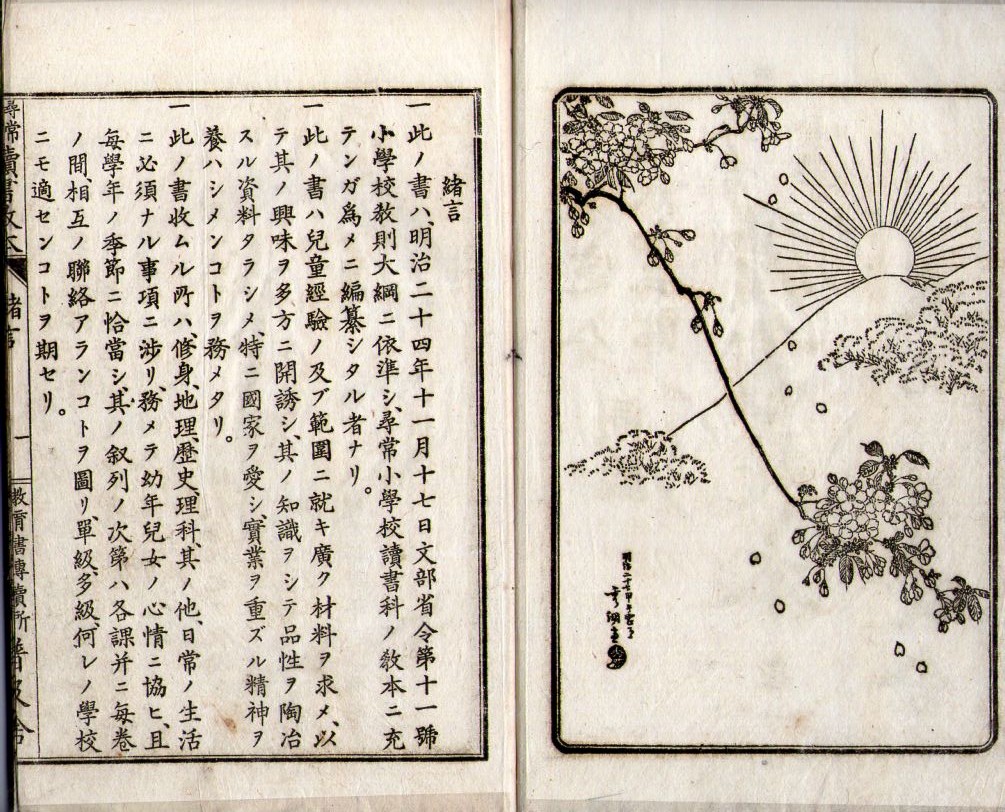 緖言
一此ノ書ハ、明治二十四年十一月十七日文部省令第十一號
小學校敎則大綱ニ依準シ、尋常小學校讀書科ノ敎本ニ充
テンガ爲メニ編纂シタル者ナリ。
一此ノ書ハ兒童經驗ノ及ブ範圍ニ就キ廣ク材料ヲ求メ、以
テ其ノ興味ヲ多方ニ開誘シ、其ノ知識ヲシテ品性ヲ陶冶
スル資料タラシメ、特ニ國家ヲ愛シ、實業ヲ重ズル精神ヲ
養ハシメンコトヲ務メタリ。
一此ノ書收ムル所ハ、修身、地理、歷史、理科、其ノ他、日常ノ生活
ニ必須ナル事項ニ涉リ、務メテ幼年兒女ノ心情ニ協ヒ、且
每學年ノ季節ニ恰當シ、其ノ叙列ノ次第ハ各課幷ニ每卷
ノ間、相互ノ聯絡アランコトヲ圖リ、單級、多級、何レノ學校
ニモ適センコトヲ期セリ。
尋常讀書
緖言
一